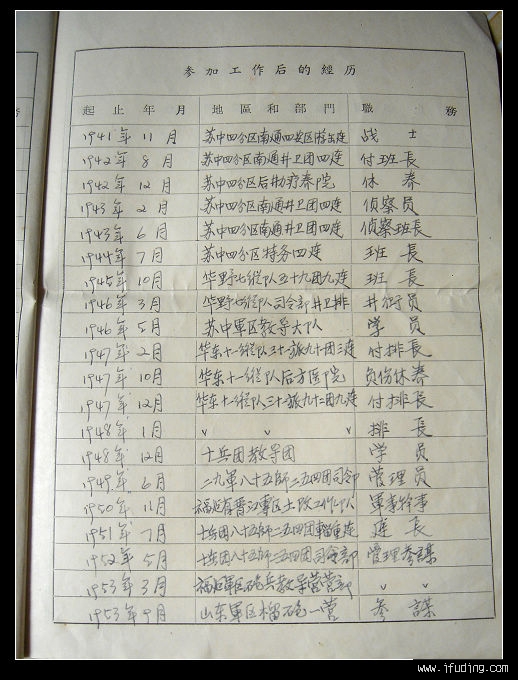 参加工作后的經历
起止年月 地區和部門 職務
1941年11月 苏中四分区南通四 战士
1942年8月 苏中四分区南通井卫团四连 付班長
1942年12月 苏中四分区后 疗养院 休养
1943年2月 苏中四分区南通井卫团四连 侦察员
1943年6月 苏中四分区南通井卫团四连 侦察班長
1944年7月 苏中四分区特务四连 班長
1945年10月 华野七纵队五十九团九连 班長
1946年3月 华野七纵队司令部井卫排 井衛员
1946年5月 苏中軍区教导大队 学员
1947年2月 华东十一纵队三十一旅九十团三连 付排長
1947年10月 华东十一纵队后方医院 负伤休养
1947年12月 华东十一纵队三十一旅九十二团九连 付排長
1948年1月 〃 〃 〃 〃 排長
1948年12月 十兵团教导团 学员
1949年6月 二九軍八十五師二五四团司令 管理员
1950年11月 福建省晋江軍区土改工作队 軍事幹事
1951年7月 十兵团八十五師二五四团輜重连 連長
1952年5月 十兵团八十五師二五四团司令部 管理参謀
1953年3月 福建軍区砲兵教导营营部 〃 〃
1953年9月 山东軍区榴砲一营 参謀
www.ifuding.com